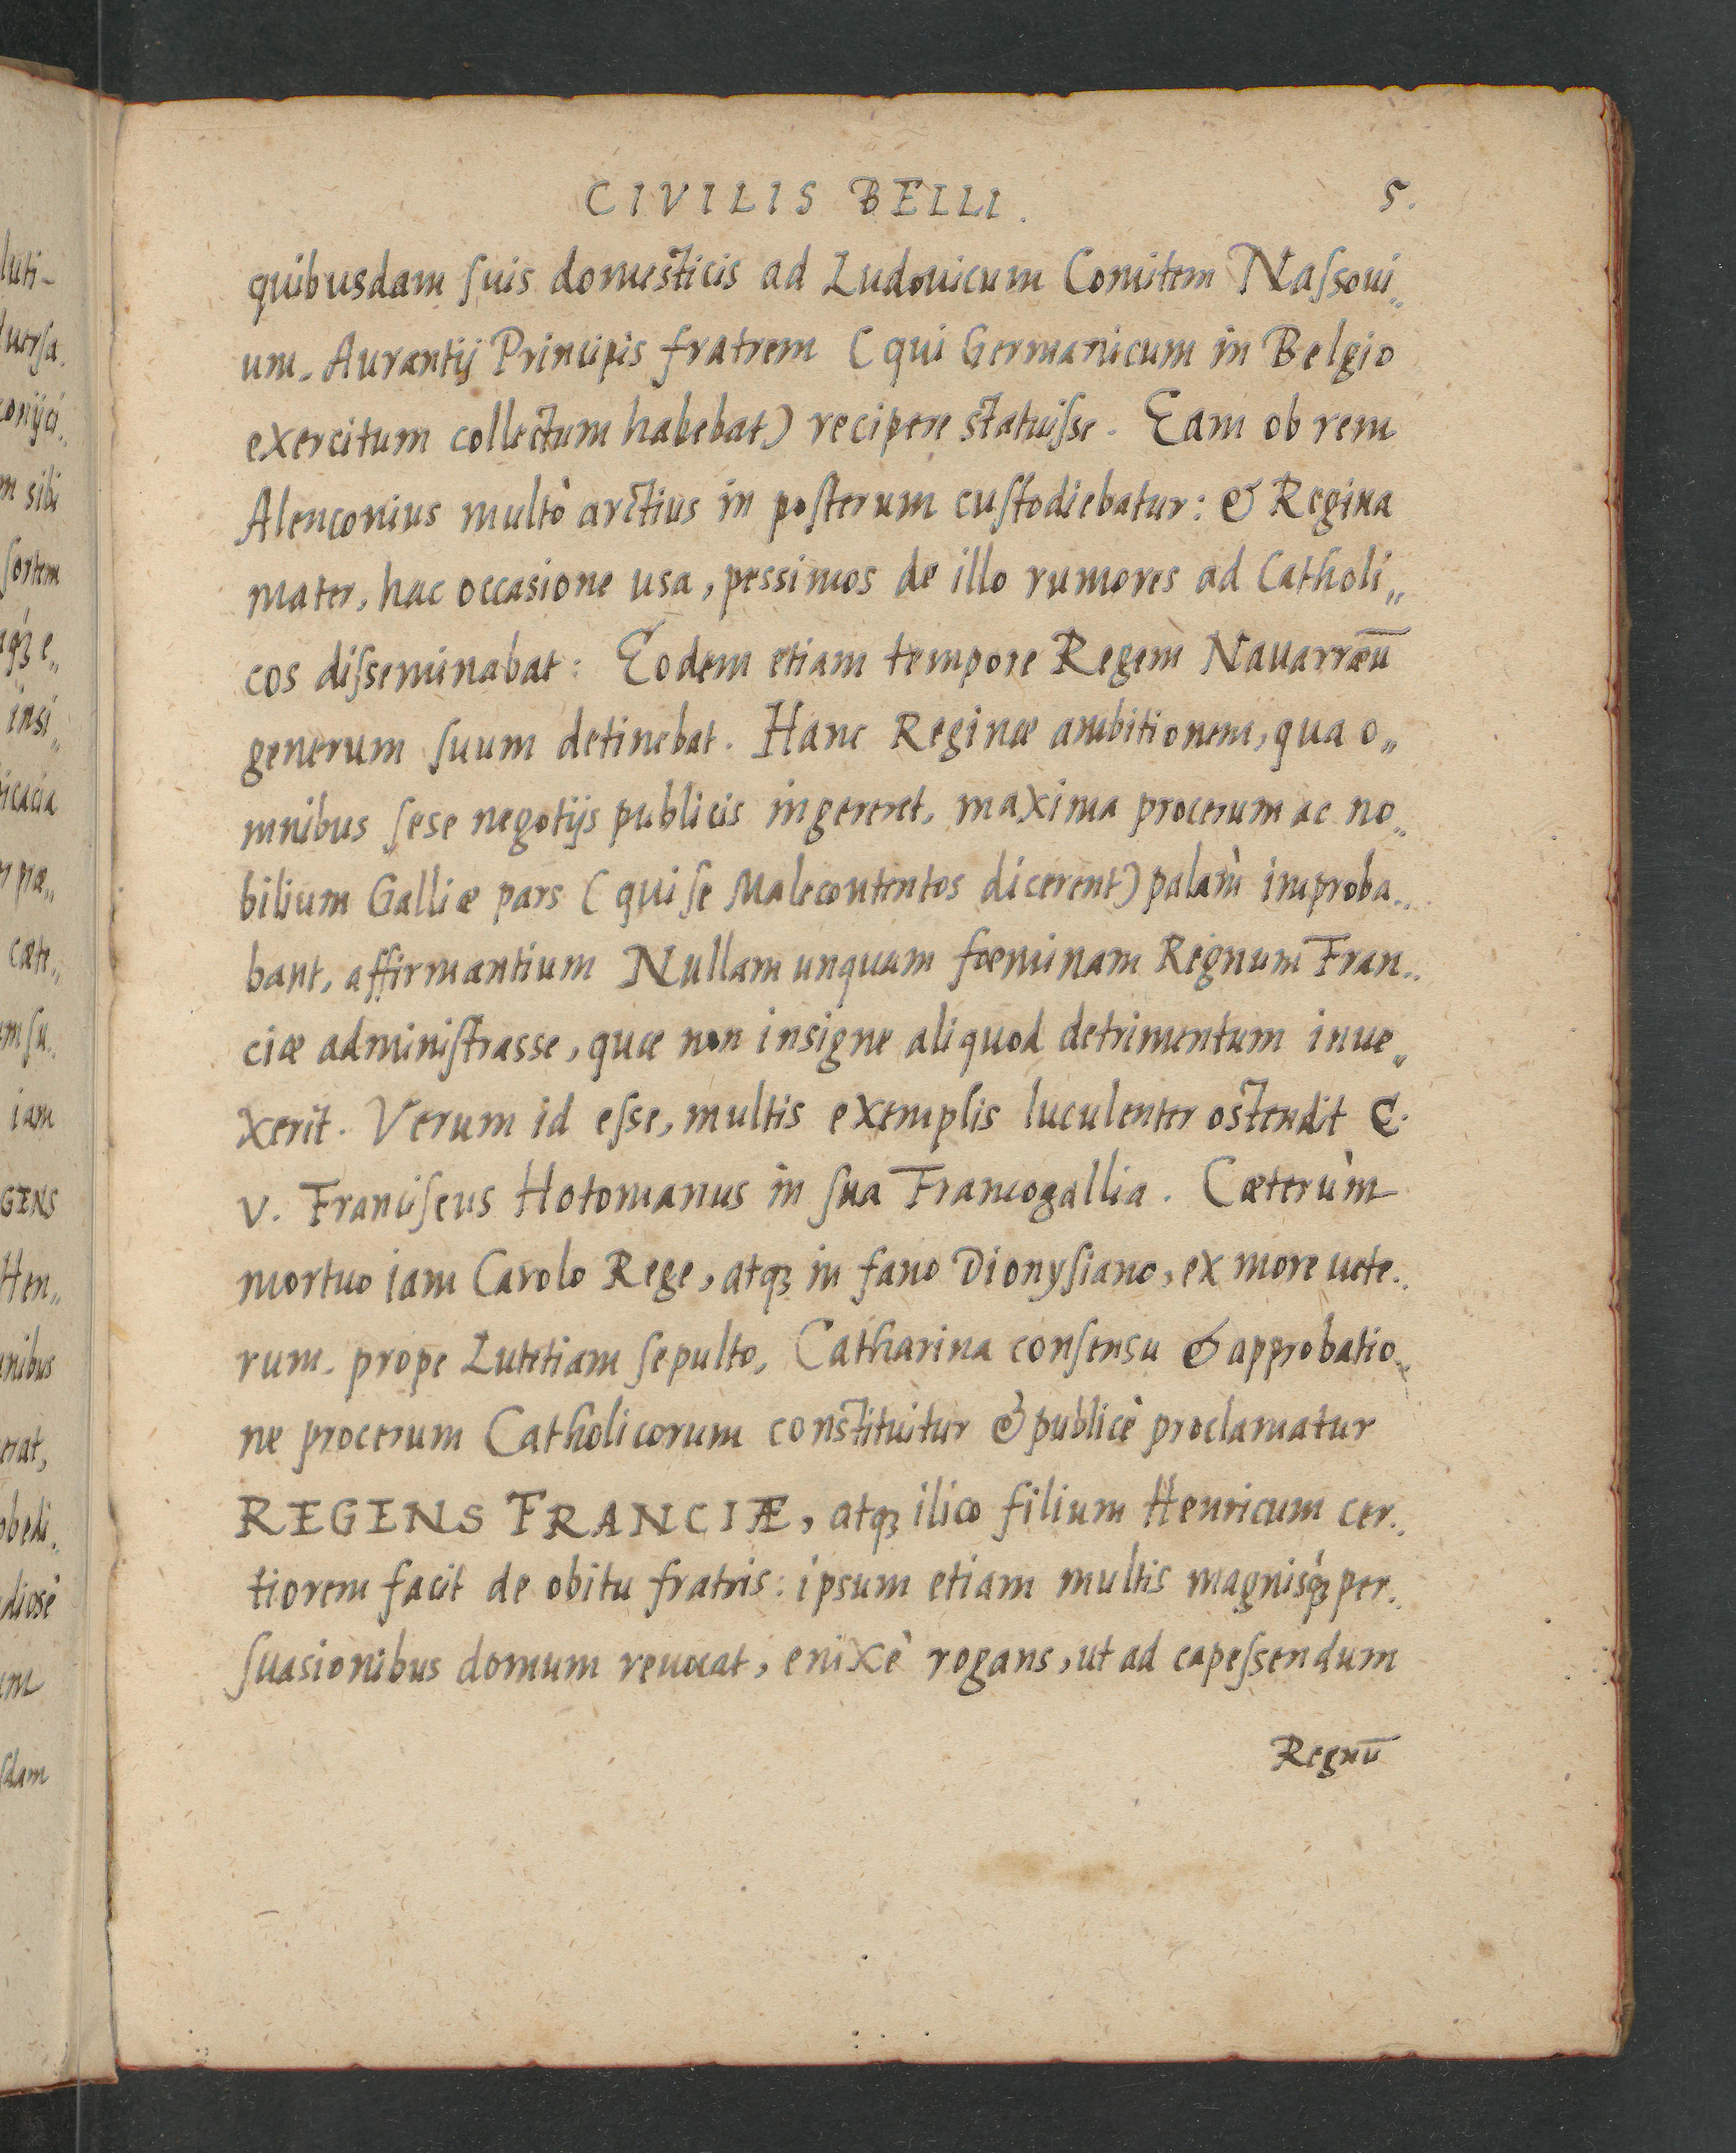 CIVILIS BELLI. 5.
quibusdam ſuis domesticis ad Ludouicum Comitem Naſsoui„
um. Aurantij Principis fratrem (qui Germanicum in Belgio
exercitum collectum habebat) recipere statuiſse. Eam ob rem
Alenconius multò arctius in poſterum cuſtodiebatur: & Regina
mater, hac occasione usa, pessimos de illo rumores ad Catholi„
cos diſseminabat: Eodem etiam tempore Regem Nauarræū
generum ſuum detinebat. Hanc Reginæ ambitionem, qua o„
mnibus ſese negotijs publicis ingereret, maxima procerum ac no„
bilium Galliæ pars (qui ſe Malecontentos dicerent) palàm improba„
bant, affirmantium Nullam unquam fœminam Regnum Fran„
ciæ adminiſtrasse, quæ non insigne aliquod detrimentum inue„
xerit. Verum id eſse, multis exemplis luculenter ostendit C.
V. Franciſcus Hotomanus in ſua Francogallia. Cæterùm
mortuo iam Carolo Rege, atqꝫ in fano Dionyſiano, ex more uete„
rum. prope Lutetiam ſepulto, Catharina conſensu & approbatio„
ne procerum Catholicorum constituitur & publicè proclamatur
REGENS FRANCIÆ, atqꝫ ilico filium Henricum cer„
tiorem facit de obitu fratris: ipsum etiam multis magnisqꝫ per„
ſuasionibus domum reuocat, enixè rogans, ut ad capeſsendum
Regnū
luti-
uersa.
conijci„
m sibi
ſortem
qꝫ e„
insi„
icacia
pæ„
cæte„
m ſu„
iam
GENS
Hen„
nibus
erat,
obedi„
diosè
um
sdam